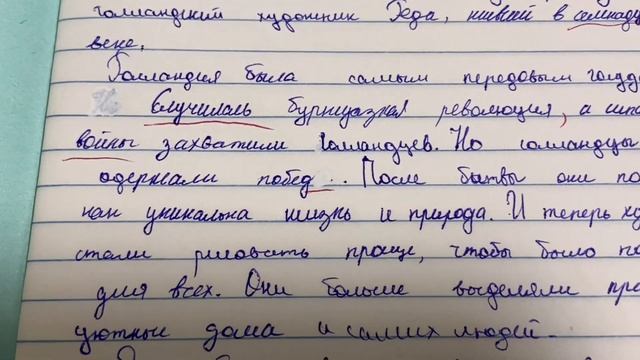 голландский художник Геда, живший в семнадца
веке.
Голландия была самым передовым госуд
Случилась буржуазная революция, а
войны захватили голландцев. Но голландцы
одержали побед . После битвы они по
как уникальна жизнь и природа. И теперь ху
стали рисовать проще, чтобы было по
для всех. Они больше выделяли про
уютные дома и самих людей.